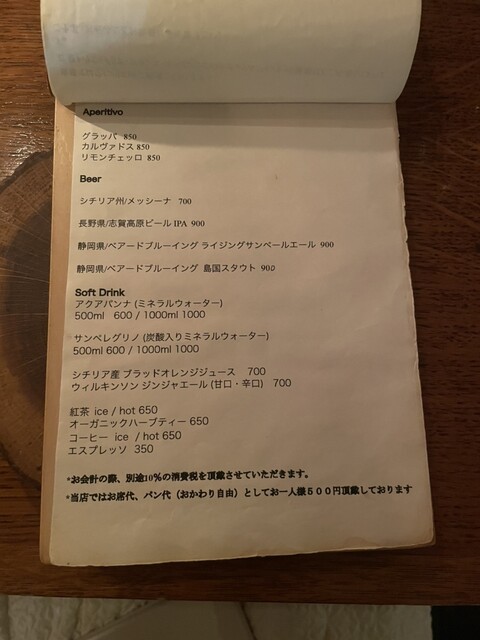 Aperitivo
グラッパ 850
カルヴァドス 850
リモンチェッロ 850
Beer
シチリア州/メッシーナ 700
長野県/志賀高原ビール IPA 900
静岡県/ベアードブルーイング ライジングサンペールエール 900
静岡県/ベアードブルーイング 島国スタウト 900
Soft Drink
アクアパンナ (ミネラルウォーター)
500ml 600 / 1000ml 1000
サンペレグリノ (炭酸入りミネラルウォーター)
500ml 600 / 1000ml 1000
シチリア産 ブラッドオレンジジュース 700
ウィルキンソン ジンジャエール (甘口・辛口) 700
紅茶 ice / hot 650
オーガニックハーブティー 650
コーヒー ice / hot 650
エスプレッソ 350
*お会計の際、別途10%の消費税を頂戴させていただきます。
*当店ではお席代、パン代（おかわり自由）としてお一人様５００円頂戴しております